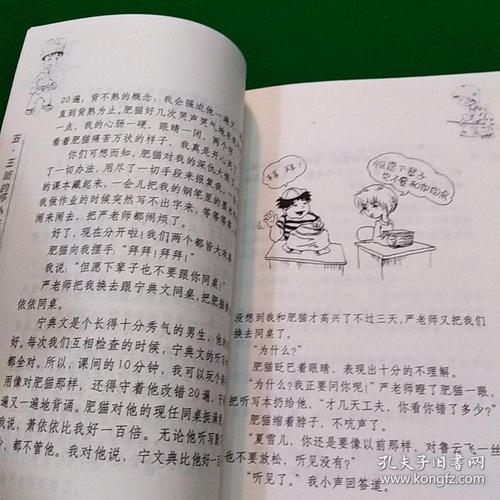 五·三班的坏小
20遍，背不熟的概念，我会强迫他一遍又
直到背熟为止。肥猫好几次哭声哭气地
一点，我的心肠一硬，眼睛一闭，两个
看着肥猫痛苦万状的样子，我真是开心
你们可想而知，肥猫对我的深仇大恨
了一切办法，用尽了一切手段来报复我。
的课本藏起来，一会儿把我的钢笔里的墨水
我做作业的时候突然写不出字来，等等等等
闹来闹去，把严老师都闹烦了。
好了，现在分开啦！我们两个都皆大欢喜
肥猫向我摆手：“拜拜！拜拜！”
我说：“但愿下辈子也不要跟你同桌！”
严老师把我换去跟宁典文同桌，把肥猫
依依同桌。
宁典文是个长得十分秀气的男生，他
好。每次我们互相检查的时候，宁典文的听写
都全对。所以，课间的10分钟，我可以玩个
用像对肥猫那样，还得守着他改错20遍，
遍又一遍地背诵。肥猫对他的现任同桌挺满
我说，萧依依比我好一百倍。无论他听写
分，都不管他。我对他说，宁文典比他好一
拜拜！
但愿下辈子也不要和你同桌
没想到我和肥猫才高兴了不过三天，严老师又把我们
换去同桌了。
“为什么？”
肥猫眨巴着眼睛，表现出十分的不理解。
“为什么？我正要问你呢！”严老师瞪了肥猫一眼，
把听写本扔给他，“才几天工夫，你看你错了多少？”
肥猫缩着脖子，不吭声了。
“夏雪儿，你还是要像以前那样，对鲁云飞一丝
也不要放松，听见没有？”
“听见了。”我小声回答道。
孔夫子旧书网